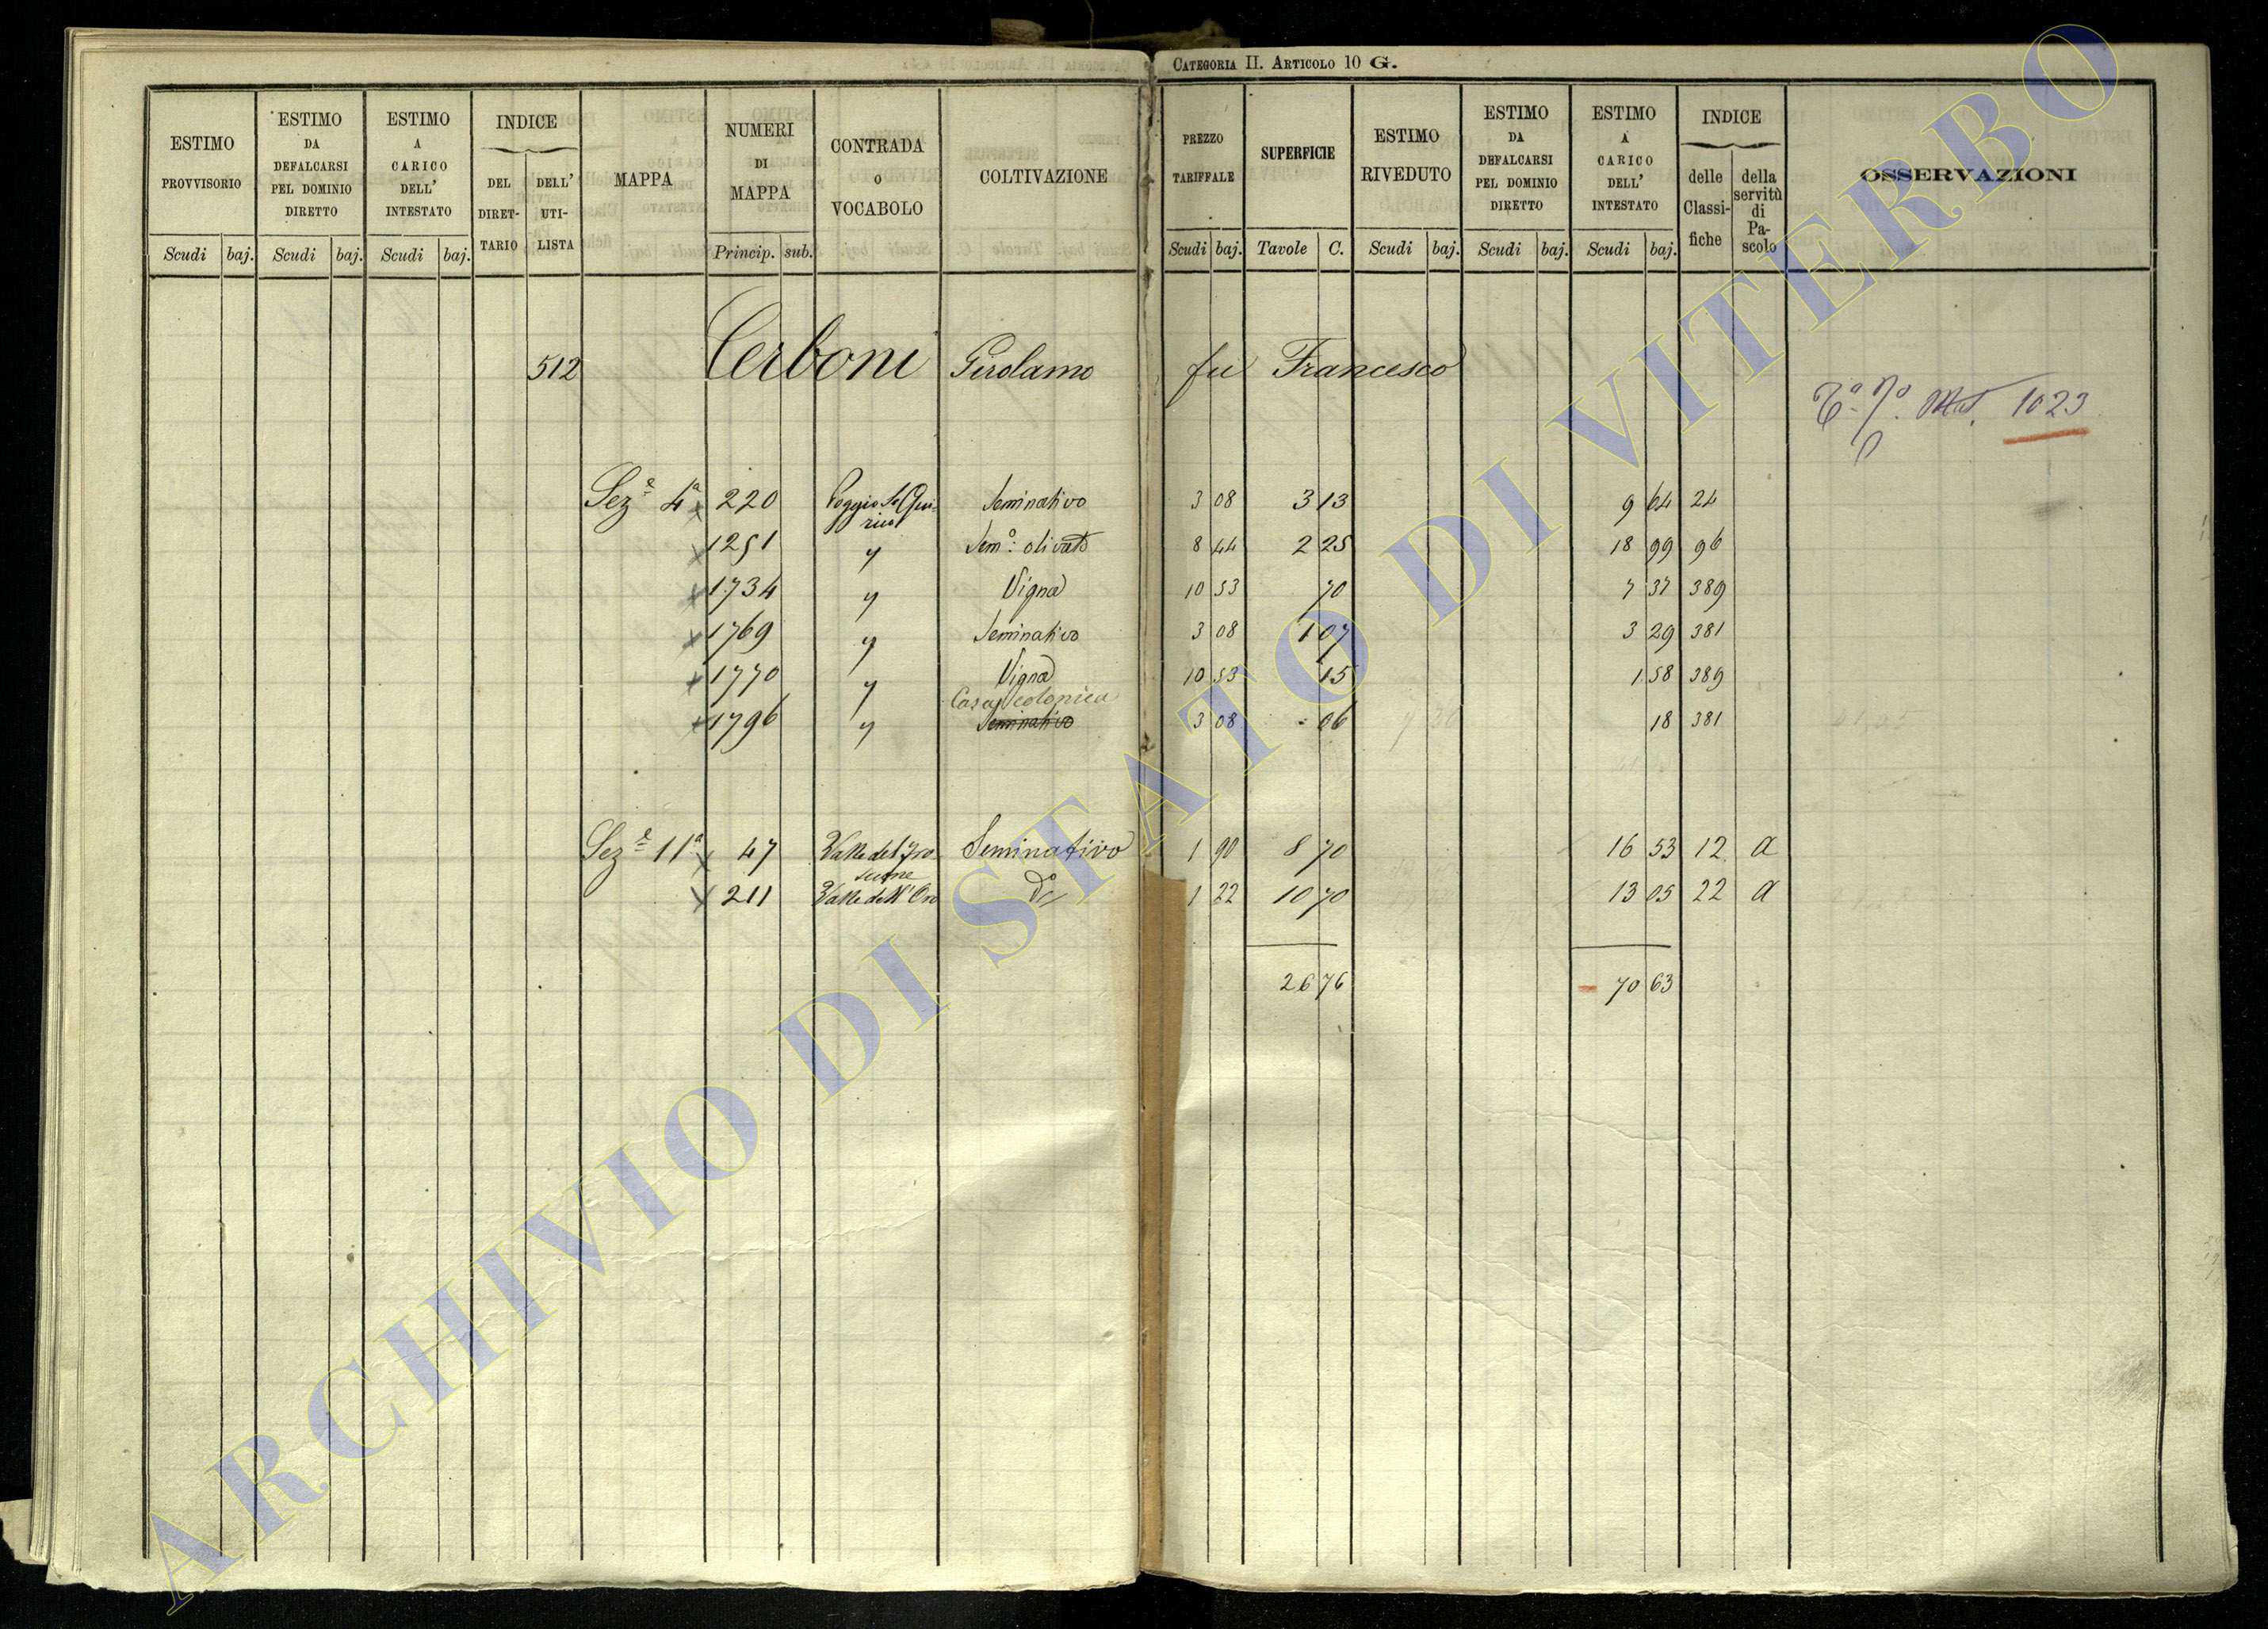 CATEGORIA II. ARTICOLO 10 G.
ESTIMO PROVVISORIO Scudi baj.
ESTIMO DA DEFALCARSI PEL DOMINIO DIRETTO Scudi baj.
ESTIMO A CARICO DELL' INTESTATO Scudi baj.
INDICE DEL DIRET-TARIO DELL' UTI-LISTA
MAPPA
NUMERI DI MAPPA Princip. sub.
CONTRADA O VOCABOLO
COLTIVAZIONE
PREZZO TARIFFALE Scudi baj.
SUPERFICIE Tavole C.
ESTIMO RIVEDUTO Scudi baj.
ESTIMO DA DEFALCARSI PEL DOMINIO DIRETTO Scudi baj.
ESTIMO A CARICO DELL' INTESTATO Scudi baj.
INDICE delle Classi-fiche della servitù di Pa-scolo
OSSERVAZIONI
512 Cerboni Girolamo fu Francesco
1023
Seze 4a 220 Poggio S. Qui-rico Seminativo 3 08 3 13 9 64 24
1251 " Semo: olivato 8 44 2 25 18 99 96
1734 " Vigna 10 53 70 7 37 389
1769 " Seminativo 3 08 1 07 3 29 381
1770 " Vigna 10 53 15 1 58 389
Casa colonica
1796 " Seminativo 3 08 06 18 381
Seze 11a 47 Valle del Seminativo 1 90 8 70 16 53 12 a
211 Valle dell'Oro do 1 22 10 70 13 05 22 a
26 76 70 63
ARCHIVIO DI STATO DI VITERBO